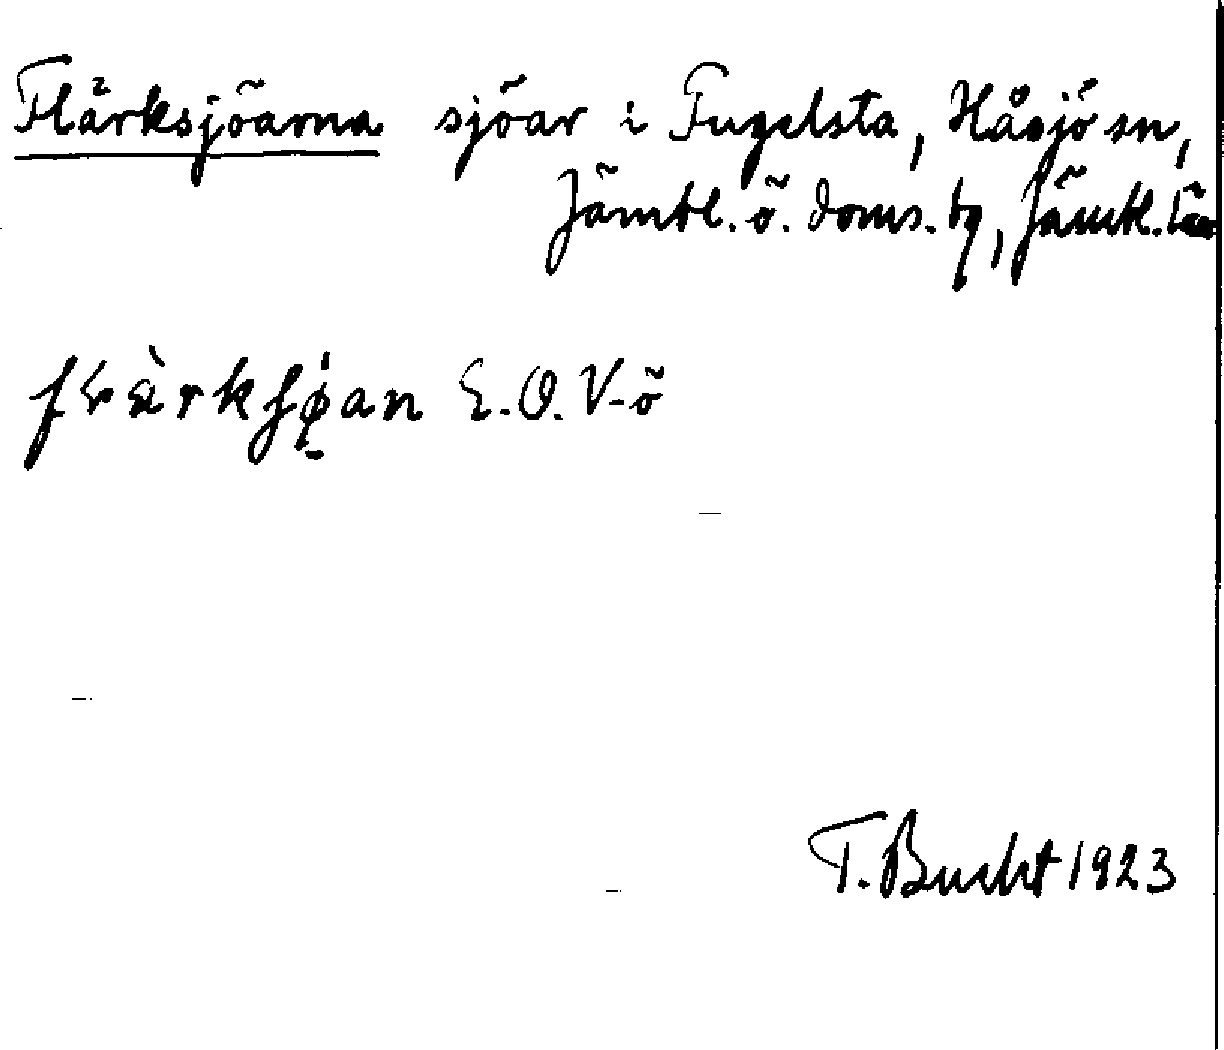 Flärksjöarna sjöar i Fugelsta, Håsjö sn,
Jämtl. ö. doms. tg, Jämtl. län
E. O. V-ö
T. Bucht 1923